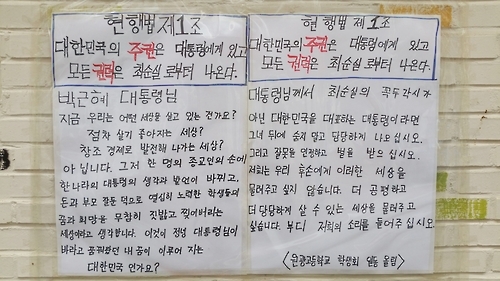 현행법 제1조
대한민국의 주권은 대통령에게 있고
모든 권력은 최순실로부터 나온다.
박근혜 대통령님
지금 우리는 어떤 세상을 살고 있는 건가요?
점차 살기 좋아지는 세상?
창조 경제로 발전해 나가는 세상?
아닙니다. 그저 한 명의 종교인의 손에
한 나라의 대통령의 생각과 발언이 바뀌고,
돈과 부모 잘 둔 덕으로 열심히 노력한 학생들의
꿈과 희망을 무참히 짓밟고 찢어버리는
세상이라고 생각합니다. 이것이 정녕 대통령님이
바라고 꿈꿔왔던 내 꿈이 이루어 지는
대한민국 인가요?
현행법 제1조
대한민국의 주권은 대통령에게 있고
모든 권력은 최순실로부터 나온다.
대통령님께서 최순실의 꼭두각시가
아닌 대한민국을 대표하는 대통령이라면
그녀 뒤에 숨지 말고 당당하게 나오십시오.
그리고 잘못을 인정하고 벌을 받으십시오.
저희는 우리 후손에게 이러한 세상을
물려주고 싶지 않습니다. 더 공평하고
더 당당하게 살 수 있는 세상을 물려주고
싶습니다. 부디 저희의 소리를 들어주십시오.
학생회 일동 올림